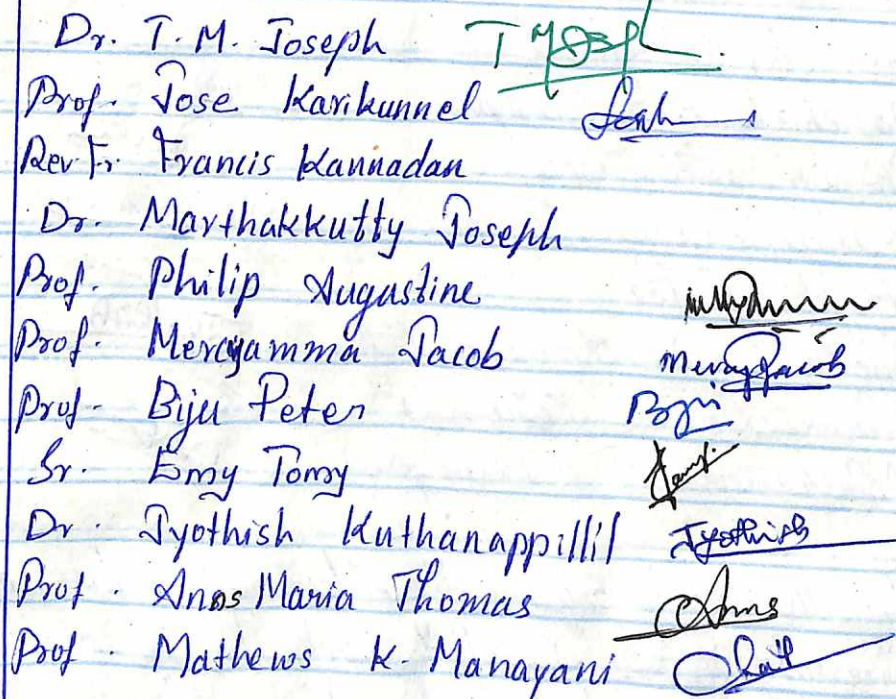 Dr. T. M. Joseph T M Joseph
Prof. Jose Karikunnel
Rev. Fr. Francis Kannadan
Dr. Marthakkutty Joseph
Prof. Philip Augustine
Prof. Mercyamma Jacob Mercy Jacob
Prof. Biju Peter Biju
Sr. Emy Tomy
Dr. Jyothish Kuthanappillil Jyothish
Prof. Anns Maria Thomas Anns
Prof. Mathews K. Manayani